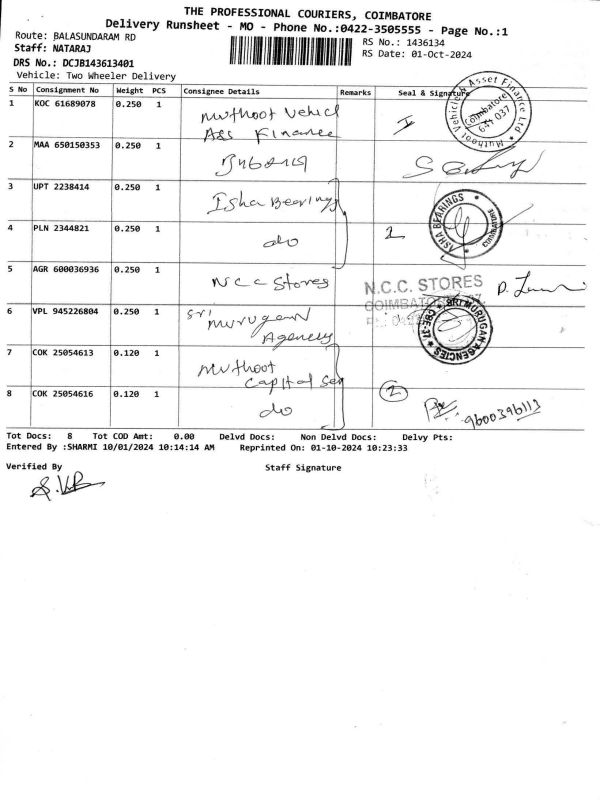 THE PROFESSIONAL COURIERS, COIMBATORE
Delivery Runsheet - MO - Phone No.:0422-3505555 - Page No.:1
Route: BALASUNDARAM RD
RS No.: 1436134
Staff: NATARAJ
RS Date: 01-Oct-2024
DRS No.: DCJB143613401
Vehicle: Two Wheeler Delivery
S No Consignment No Weight PCS Consignee Details Remarks Seal & Signature
1 KOC 61689078 0.250 1 Muthoot Vehicl
Ass Finance
Muthoot Vehicle & Asset Finance Ltd
Coimbatore
641 037
2 MAA 650150353 0.250 1
3 UPT 2238414 0.250 1 Isha Bearings
4 PLN 2344821 0.250 1 do 2
ISHA BEARINGS
COIMBATORE
5 AGR 600036936 0.250 1 N.C.C Stores N.C.C. STORES
6 VPL 945226804 0.250 1 Sri
Murugan
Agency
SRI MURUGAN AGENCIES
CBE-37
7 COK 25054613 0.120 1 Muthoot
Capital Ser
8 COK 25054616 0.120 1 do 2
9600396113
Tot Docs: 8 Tot COD Amt: 0.00 Delvd Docs: Non Delvd Docs: Delvy Pts:
Entered By :SHARMI 10/01/2024 10:14:14 AM Reprinted On: 01-10-2024 10:23:33
Verified By Staff Signature